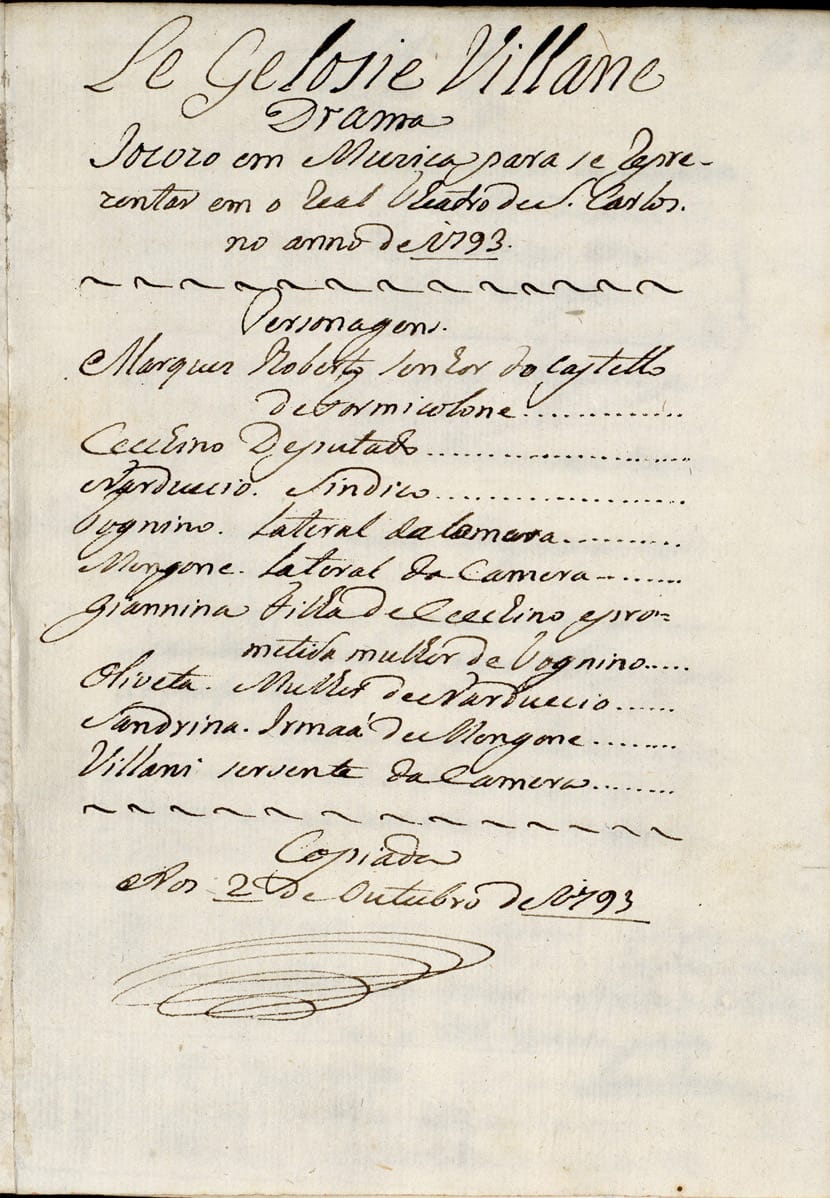 Le Gelosie Villane
Drama
Jocozo em Muzica para se Repre-
zentar em o Real Theatro de S. Carlos.
no anno de 1793.
Personagens.
Marquez Roberto senhor do Castello
de Formicolone.............
Cecchino Deputado.....................
Narduccio. Sindico.....................
Tognino. Lateral da Camera..........
Mengone. Lateral da Camera........
Giannina Filha de Cecchino e pro=
metida mulher de Tognino.....
Oliveta. Mulher de Narduccio......
Sandrina. Irmaã de Mengone........
Villani servente da Camera........
Copiada
Aos 2 de Outubro de 1793